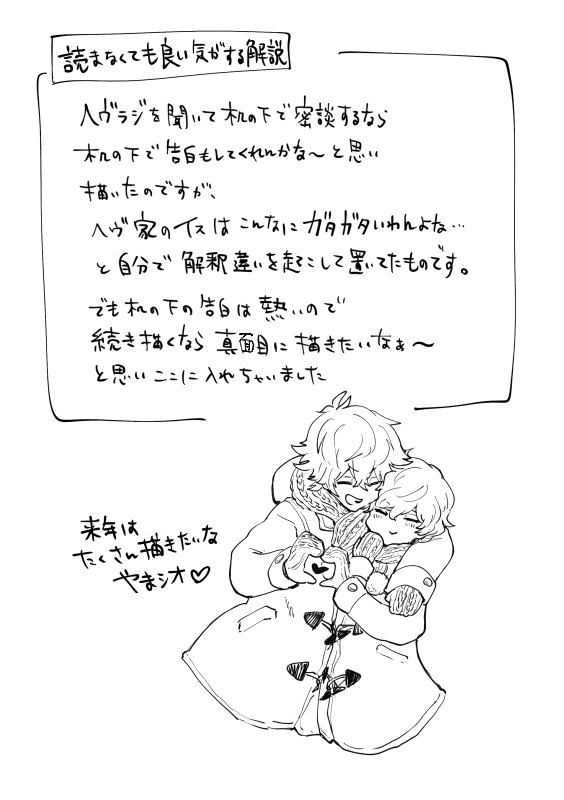 読まなくても良い気がする解説
ヘヴラジを聞いて机の下で密談するなら
机の下で告白もしてくれんかな〜と思い
描いたのですが、
ヘヴ家のイスはこんなにガタガタいわんよな…
と自分で解釈違いを起こして置いてたものです。
でも机の下の告白は熱いので
続き描くなら真面目に描きたいなぁ〜
と思いここに入れちゃいました
来年は
たくさん描きたいな
やまシオ♡